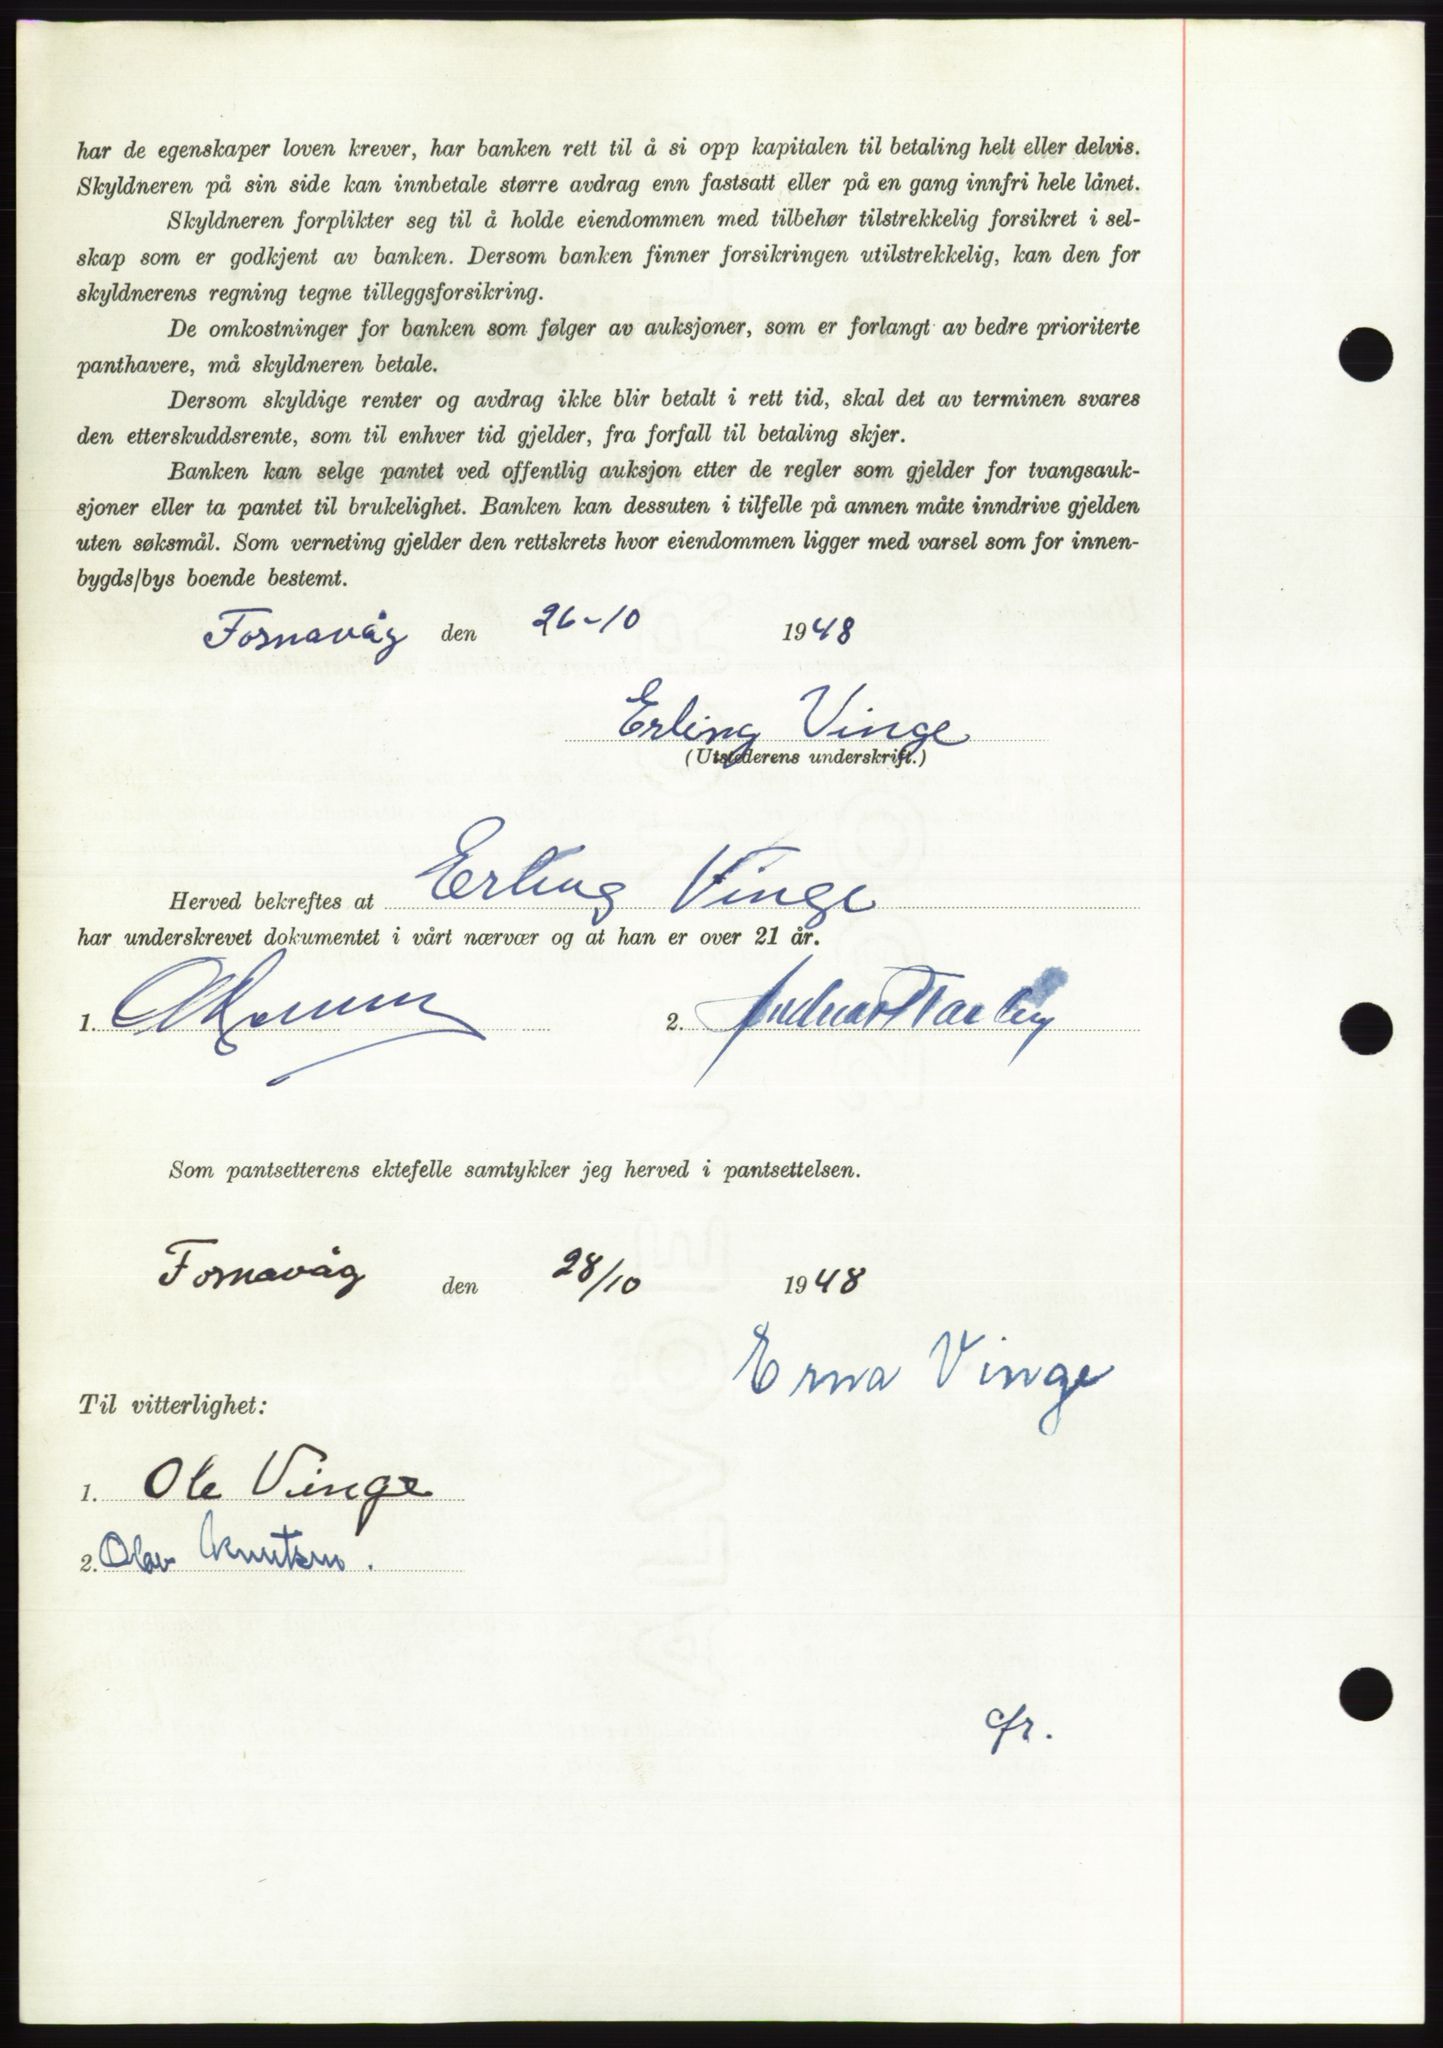 har de egenskaper loven krever, har banken rett til å si opp kapitalen til betaling helt eller delvis.
Skyldneren på sin side kan innbetale større avdrag enn fastsatt eller på en gang innfri hele lånet.
Skyldneren forplikter seg til å holde eiendommen med tilbehør tilstrekkelig forsikret i sel-
skap som er godkjent av banken. Dersom banken finner forsikringen utilstrekkelig, kan den for
skyldnerens regning tegne tilleggsforsikring.
De omkostninger for banken som følger av auksjoner, som er forlangt av bedre prioriterte
panthavere, må skyldneren betale.
Dersom skyldige renter og avdrag ikke blir betalt i rett tid, skal det av terminen svares
den etterskuddsrente, som til enhver tid gjelder, fra forfall til betaling skjer.
Banken kan selge pantet ved offentlig auksjon etter de regler som gjelder for tvangsauk-
sjoner eller ta pantet til brukelighet. Banken kan dessuten i tilfelle på annen måte inndrive gjelden
uten søksmål. Som verneting gjelder den rettskrets hvor eiendommen ligger med varsel som for innen-
bygds/bys boende bestemt.
Fosnavåg den 26-10 1948
Erling Vinge
(Utstederens underskrift.)
Herved bekreftes at Erling Vinge
har underskrevet dokumentet i vårt nærvær og at han er over 21 år.
1. 2. Andreas
Som pantsetterens ektefelle samtykker jeg herved i pantsettelsen.
Fosnavåg den 28/10 1948
Erna Vinge
Til vitterlighet:
1. Ole Vinge
2. Olav Knutsen.
cfr.